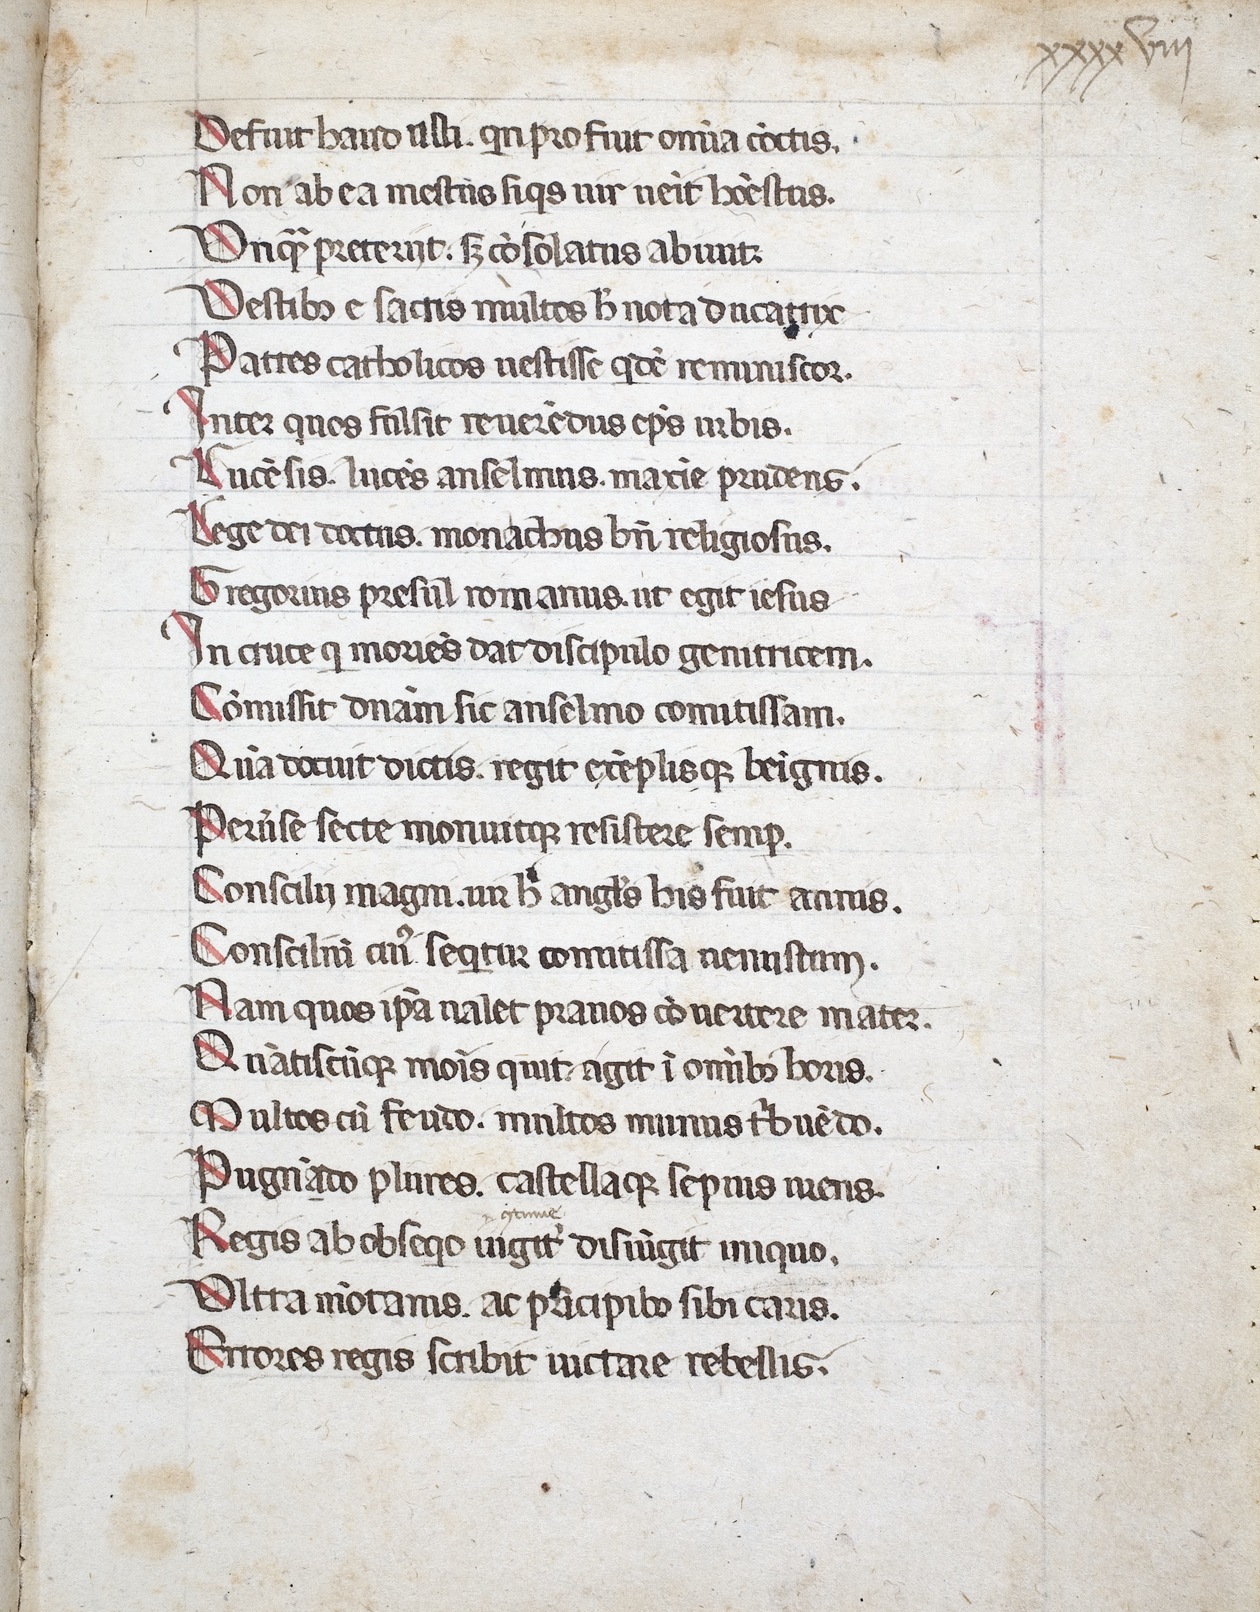 xxxxviij
Defuit haud ulli. qn profuit omia coctis.
Non ab ea mestus siqs uir neit hoestus.
Vnqua preterijt. sz cosolatus abiuit.
Vestibꝫ e sacris multos h nota ducatrix
Patres catholicos uestisse qde reminiscor.
Inter quos fulsit reueredus eps urbis.
Lucesis. luces anselmus. maxie prudens.
Lege dei doctus. monachus bn religiosus.
Gregorius presul romanus. ut egit iesus
In cruce q mories dat discipulo genitricem.
Comissit dnam sic anselmo comitissam.
Qua docuit dictis. regit exeplisqꝫ beignis.
Peruse secte monuitqꝫ resistere semp.
Conscilij magni. uir h angls his fuit annis.
Consciliu cui9 seqtur comitissa uenustum.
Nam quos ipa ualet prauos couertere mater.
Quatiscuqꝫ mois quit. agit i omibꝫ horis.
Multos cu feudo. multos munus tbuedo.
Pugnado plures. castellaqꝫ sepius urens.
Regis ab obseqo iugit disiugit iniquo.
Vltra motanis. ac pricipibꝫ sibi caris.
Errores regis scribit iuctare rebellis.